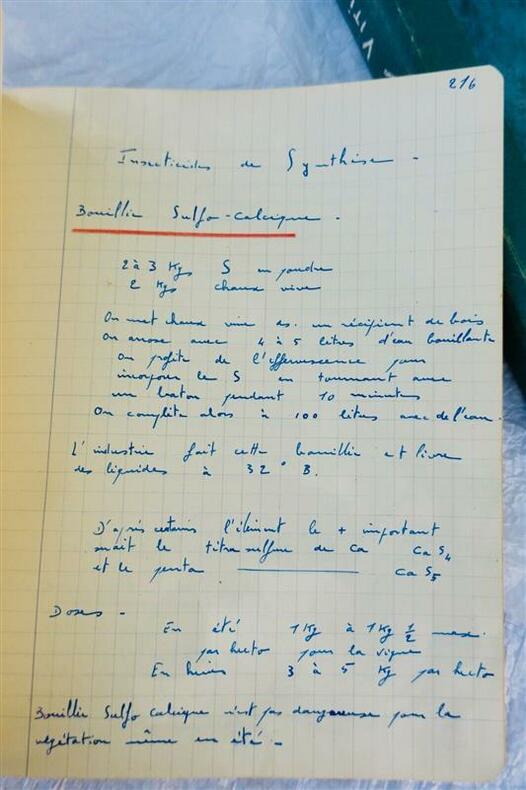 VITI
216
Insecticides de Synthèse -
Bouillie Sulfo-calcique.
2 à 3 Kgs S en poudre
2 Kgs chaux vive
On met chaux vive ds. un récipient de bois
On arrose avec 4 à 5 litres d'eau bouillante
On profite de l'effervescence pour
incorporer le S en tournant avec
un baton pendant 10 minutes
On complète alors à 100 litres avec de l'eau.
L'industrie fait cette bouillie et livre
des liquides à 32° B.
D'après certains l'élément le + important
serait le tétrasulfure de Ca CaS4
et le penta ———— CaS5
Doses -
En été 1Kg à 1Kg 1/2 max.
par hecto pour la vigne
En hiver 3 à 5 Kg par hecto
Bouillie Sulfo calcique n'est pas dangereuse pour la
végétation même en été -